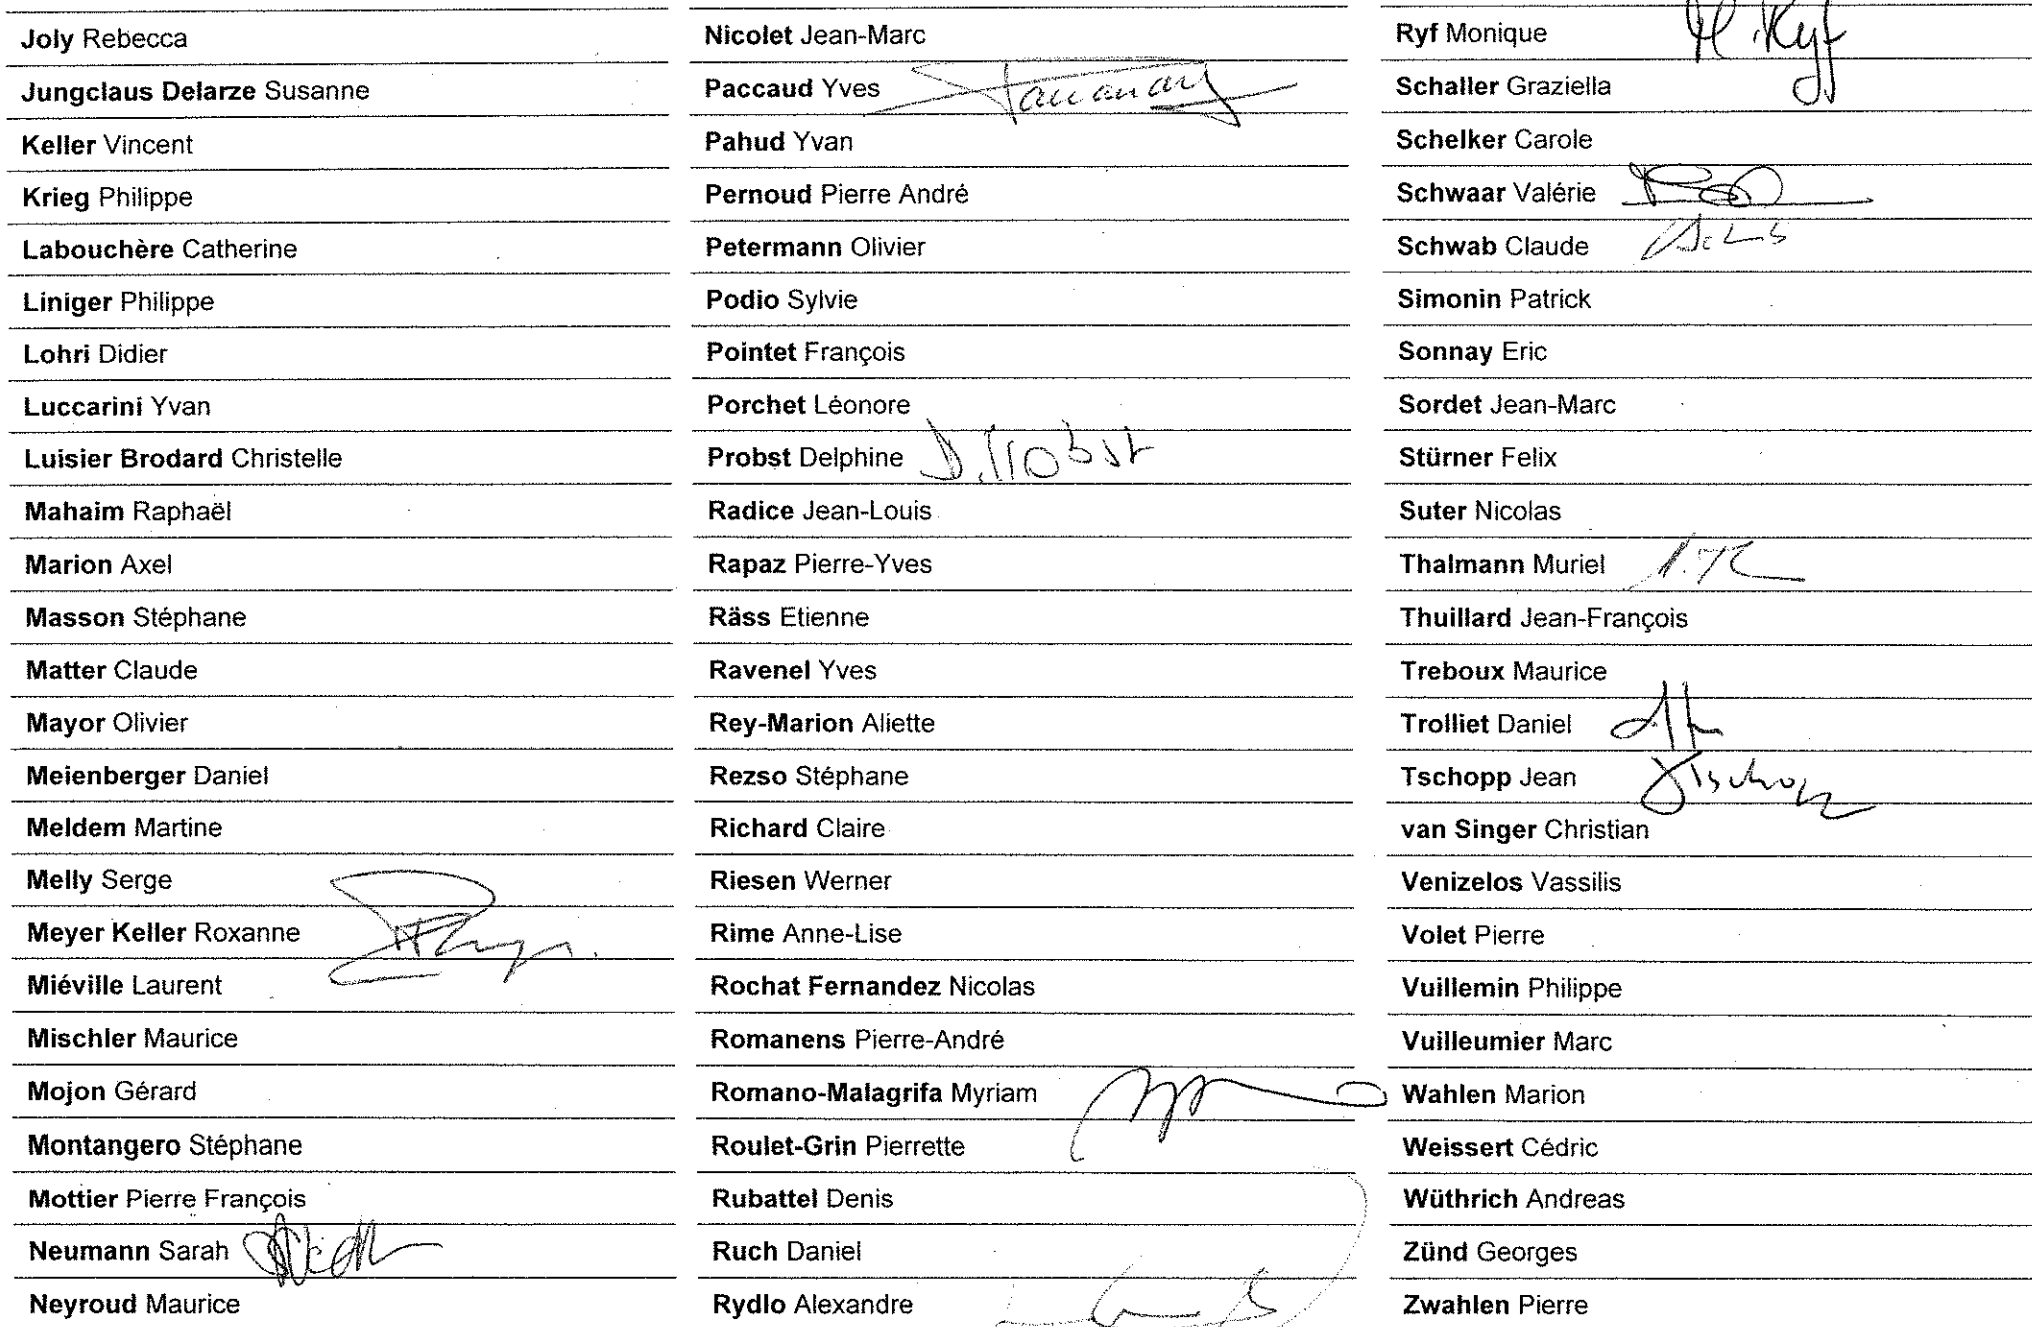 Joly Rebecca
Jungclaus Delarze Susanne
Keller Vincent
Krieg Philippe
Labouchère Catherine
Liniger Philippe
Lohri Didier
Luccarini Yvan
Luisier Brodard Christelle
Mahaim Raphaël
Marion Axel
Masson Stéphane
Matter Claude
Mayor Olivier
Meienberger Daniel
Meldem Martine
Melly Serge
Meyer Keller Roxanne
Miéville Laurent
Mischler Maurice
Mojon Gérard
Montangero Stéphane
Mottier Pierre François
Neumann Sarah
Neyroud Maurice
Nicolet Jean-Marc
Paccaud Yves
Pahud Yvan
Pernoud Pierre André
Petermann Olivier
Podio Sylvie
Pointet François
Porchet Léonore
Probst Delphine D. Probst
Radice Jean-Louis
Rapaz Pierre-Yves
Räss Etienne
Ravenel Yves
Rey-Marion Aliette
Rezso Stéphane
Richard Claire
Riesen Werner
Rime Anne-Lise
Rochat Fernandez Nicolas
Romanens Pierre-André
Romano-Malagrifa Myriam
Roulet-Grin Pierrette
Rubattel Denis
Ruch Daniel
Rydlo Alexandre
Ryf Monique M. Ryf
Schaller Graziella
Schelker Carole
Schwaar Valérie
Schwab Claude
Simonin Patrick
Sonnay Eric
Sordet Jean-Marc
Stürner Felix
Suter Nicolas
Thalmann Muriel
Thuillard Jean-François
Treboux Maurice
Trolliet Daniel
Tschopp Jean JTschopp
van Singer Christian
Venizelos Vassilis
Volet Pierre
Vuillemin Philippe
Vuilleumier Marc
Wahlen Marion
Weissert Cédric
Wüthrich Andreas
Zünd Georges
Zwahlen Pierre